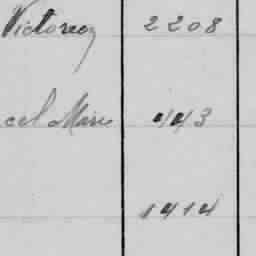 Victorea 2208
cel Marie 443
1414